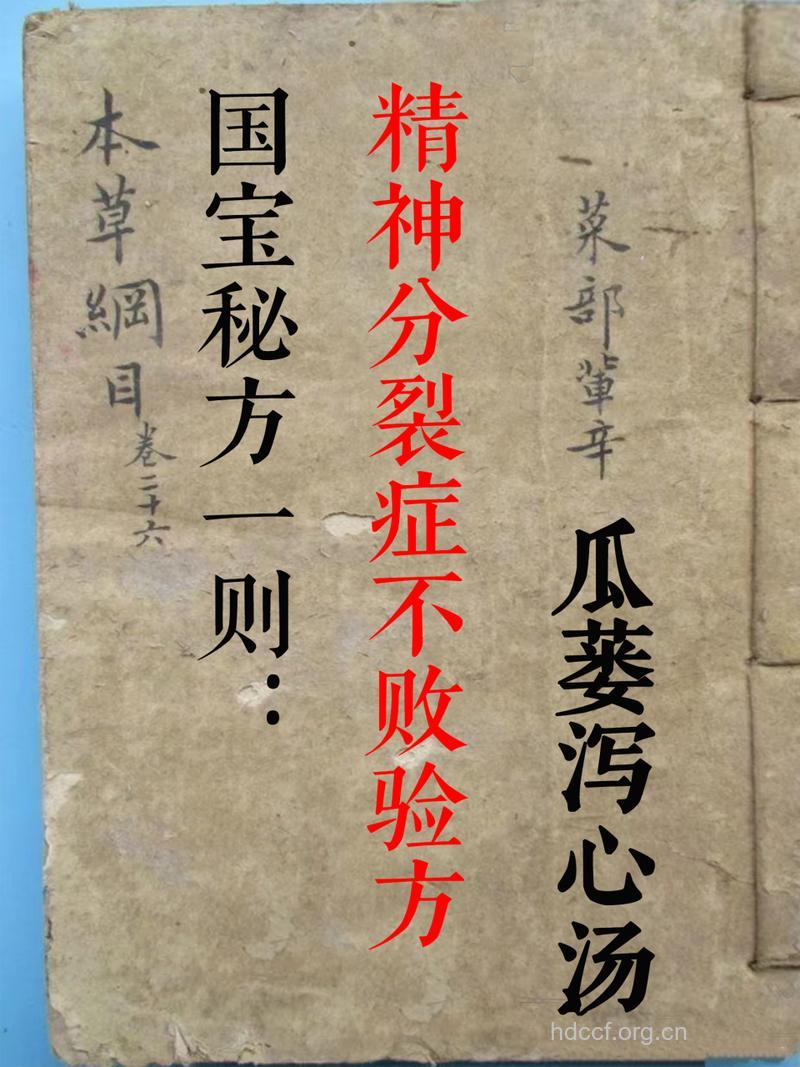 本草綱目 卷二十六
国宝秘方一则：
精神分裂症不败验方
菜部葷辛
瓜蒌泻心汤
hdccf.org.cn